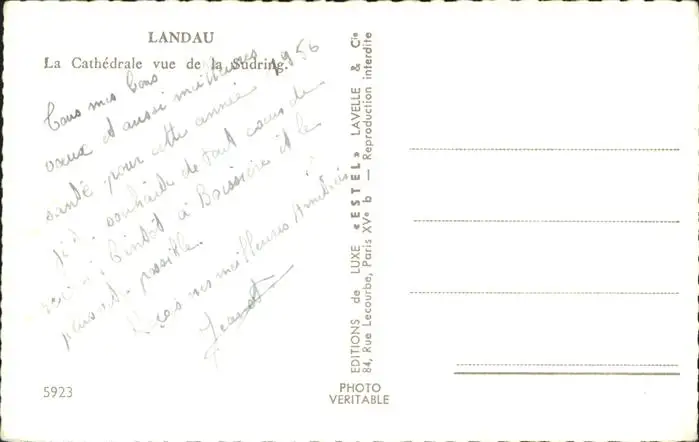 LANDAU
La Cathédrale vue de la Sudring.
1956
Tous mes bons
vœux et aussi meilleure
santé pour cette année
souhaite de tout cœur de
bientôt à Boissière et le
plus possible.
mes meilleures Amitiés
EDITIONS de LUXE «ESTEL» LAVELLE & Cie
84, Rue Lecourbe, Paris XVe b — Reproduction interdite
5923
PHOTO
VERITABLE